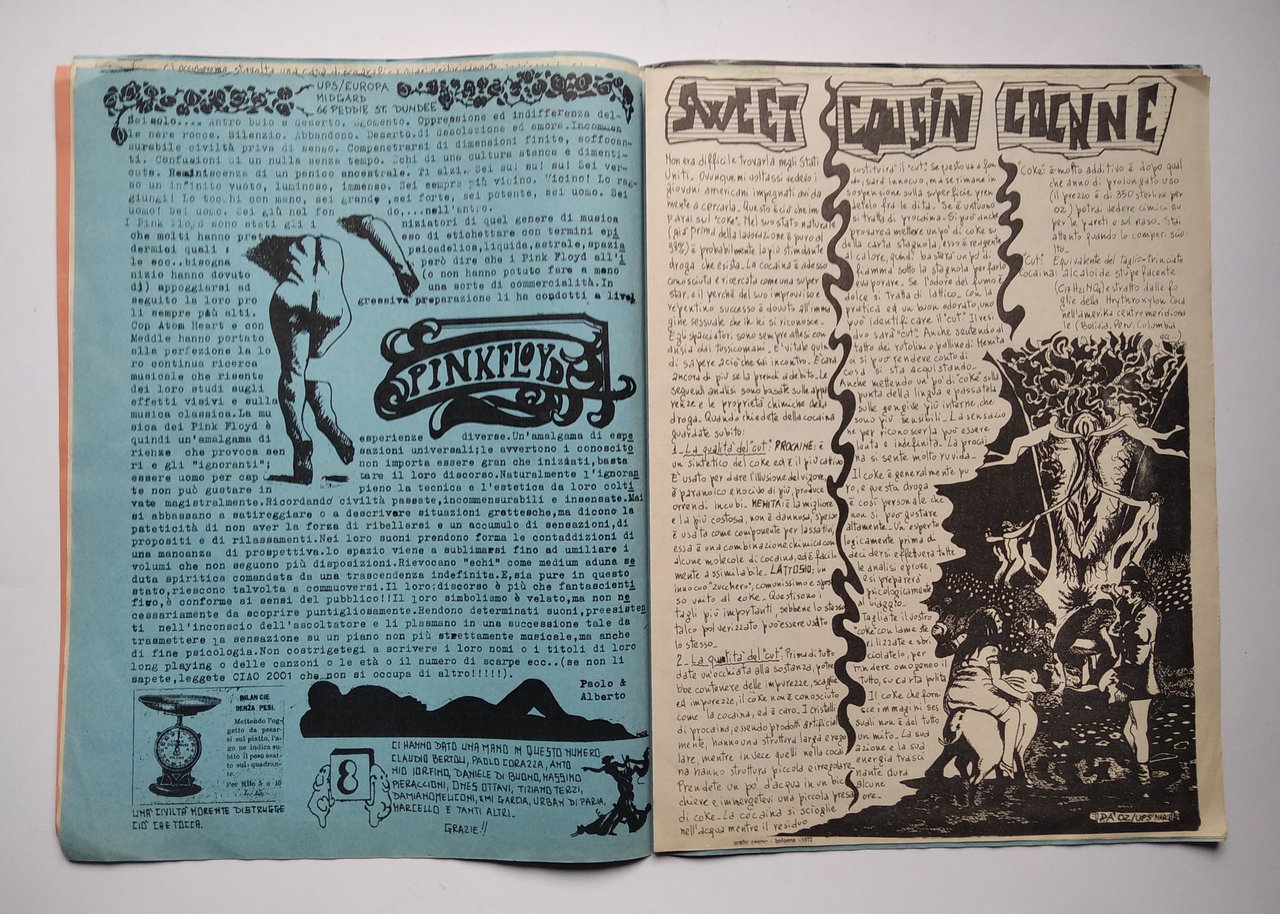 UPS/EUROPA
MIDGARD
66 PEDDIE ST. DUNDEE
Sei solo.... Antro buio e deserto. Sgomento. Oppressione ed indifferenza del-
le nere rocce. Silenzio. Abbandono. Deserto.di desolazione ed amore.Incommen
surabile civiltà priva di senso. Compenetrarsi di dimensioni finite, soffocan-
ti. Confusioni di un nulla senza tempo. Echi di una cultura stanca e dimenti-
cata. Reminiscenza di un panico ancestrale. Ti alzi. Sei su! su! su! Sei ver-
so un infinito vuoto, luminoso, immenso. Sei sempre più vicino. Vicino! Lo rag-
giungi! Lo tocchi con mano, sei grande ,sei forte, sei potente, sei uomo. Sei
uomo! Sei uomo. Sei giù nel fon do,...nell'antro.
I Pink Floyd sono stati gli i niziatori di quel genere di musica
che molti hanno pret eso di etichettare con termini epi
dermici quali : psicadelica,liquida,astrale,spazia
le ecc..bisogna però dire che i Pink Floyd all'i
nizio hanno dovuto (o non hanno potuto fare a meno
di) appoggiarsi ad una sorte di commercialità.In
seguito la loro pro gressiva preparazione li ha condotti a livel
li sempre più alti.
Con Atom Heart e con
Meddle hanno portato
alla perfezione la lo
ro continua ricerca
musicale che risente
dei loro studi sugli
effetti visivi e sulla
musica classica.La mu
sica dei Pink Floyd è
PINK FLOYD
quindi un'amalgama di esperienze diverse.Un'amalgama di espe
rienze che provoca sen sazioni universali;le avvertono i conoscito
ri e gli "ignoranti"; non importa essere gran che iniziati,basta
essere uomo per cap tare il loro discorso.Naturalmente l'ignoran
te non può gustare in pieno la tecnica e l'estetica da loro colti
vate magistralmente.Ricordando civiltà passate,incommensurabili e insensate.Mai
si abbassano a satireggiare o a descrivere situazioni grottesche,ma dicono la
pateticità di non aver la forza di ribellarsi e un accumulo di sensazioni,di
propositi e di rilassamenti.Nei loro suoni prendono forma le contaddizioni di
una mancanza di prospettiva.lo spazio viene a sublimarsi fino ad umiliare i
volumi che non seguono più disposizioni.Rievocano "echi" come medium aduna se
duta spiritica comandata da una trascendenza indefinita.E,sia pure in questo
stato,riescono talvolta a commuoversi.Il loro:discorso è più che fantascienti
fico,è conforme ai sensi del pubblico!!Il loro simbolismo è velato,ma non ne
cessariamente da scoprire puntigliosamente.Rendono determinati suoni,preesisten
ti nell'inconscio dell'ascoltatore e li plasmano in una successione tale da
trasmettere la sensazione su un piano non più strettamente musicale,ma anche
di fine psicologia.Non costrigetegi a scrivere i loro nomi o i titoli di loro
long playing o delle canzoni o le età o il numero di scarpe ecc..(se non li
sapete,leggete CIAO 2001 che non si occupa di altro!!!!!).
Paolo &
Alberto
BILANCIE
SENZA PESI.
Mettendo l'og-
getto da pesar-
si sul piatto, l'a-
go ne indica su-
bito il peso esat-
to sul quadran-
te.
Per Kilo 5 o 10
UNA CIVILTA' MORENTE DISTRUGGE
CIO' CHE TOCCA.
8
CI HANNO DATO UNA MANO IN QUESTO NUMERO:
CLAUDIO BERTOLI, PAOLO CORAZZA, ANTO
NIO IORFINO, DANIELE DI BUONO, MASSIMO
PIERACCIONI, ONES OTTAVI, TIZIANO TERZI,
DAMIANO MELICONI, EMI GARCIA, URBAN DI PARIA,
MARCELLO E TANTI ALTRI.
GRAZIE!!
SWEET COUSIN COCAINE
Non era difficile trovarla negli Stati
Uniti. Ovunque mi voltassi vedevo i
giovani americani impegnati avida
mente a cercarla. Questo è ciò che im
parai sul "coke". Nel suo stato naturale
(già prima della lavorazione è puro al
98%) è probabilmente la più stimolante
droga che esista. La cocaina è adesso
conosciuta e ricercata come una super
star, e il perchè del suo improvviso e
repentino successo è dovuto all'imma
gine sessuale che le lei si riconosce.
Egli spacciatori sono sempre attesi con
ansia dai tossicomani. E' vitale quin
di sapere a ciò che si va incontro. È cara
ancora di più se la prendi a debito. Le
seguenti analisi sono basate sulle appa
renze e le proprietà chimiche della
droga. Quando chiedete della cocaina
guardate subito:
1_La qualità del "cut": PROCAINE: è
un sintetico del coke ed è il più cattivo
E' usato per dare l'illusione del vigore,
è paranoico e nocivo di più, produce
orrendi incubi. MENITA: è la migliore
e la più costosa, non è dannosa, spesso
è usata come componente per lassativi,
essa è una combinazione chimica con
alcune molecole di cocaina, ed è facil-
mente assimilabile. LATTOSIO: un
innocuo "zucchero", comunissimo e spes
so unito al coke. Questi sono i
tagli più importanti, sebbene lo stesso
talco polverizzato può essere usato
lo stesso.
2_La qualità del "cut". Prima di tutto
date un'occhiata alla sostanza, potre
bbe contenere delle impurezze, scaglie
ed impurezze, il coke non è conosciuto
come la cocaina, ed è caro. I cristalli
di procaina, essendo prodotti artificial
mente, hanno una struttura larga e rego
lare, mentre invece quelli nella cocai
na hanno struttura piccola e irregolare.
Prendete un po' d'acqua in un bic
chiere e immergetevi una piccola presa
di coke_La cocaina si scioglie
nell'acqua mentre il residuo
costituirà il "cut". Se questo va a fon
do, sarà innocuo, ma se rimane in
sospensione sulla superficie pren
detelo fra le dita. Se è untuoso
si tratta di procaina. Si può anche
provare a mettere un po' di coke su
della carta stagnola, esso è reagente
al calore, quindi basterà un po' di
fiamma sotto la stagnola per farlo
evaporare. Se l'odore del fumo è
dolce si tratta di lattico. Con la
pratica ed un buon odorato, uno
può identificare il "cut". Il resi
duo sarà "cut". Anche sentendo al
tatto dei rotolini o palline di Menita
ci si può rendere conto di
cosa si sta acquistando.
Anche mettendo un po' di coke sulla
punta della lingua e passatela
sulle gengive più interne, che
sono più sensibili. La sensazio
ne per riconoscerla può essere
acuta e indefinita. La procai
na si sente molto ruvida.
Il coke è generalmente pu
ro, e questa droga
è così personale che
non si può gustare
altamente. Un esperto
logicamente prima di
decidersi effettuerà tutte
le analisi e prove,
e si preparerà
psicologicamente
al viaggio.
Tagliate il vostro
"coke" con lame ste
rilizzate e sbri
ciolatelo, per
rendere omogeneo il
tutto, su carta pulita
Il coke che forni
sce immagini ses
suali non è del tutto
un mito. La sua
azione e la sua
energia trasci
nante dura
alcune
ore_
"Coke: è molto additivo è dopo qual
che anno di prolungato uso
(il prezzo è di 350 sterline per
oz) potrai vedere cimici su
per le pareti e sul naso. Stai
attento quando lo comperi sciol
to.
"Cut: Equivalente del taglio-trinciato
Cocaina: alcaloide stupefacente
(C17H21NO4) estratto dalle fo
glie della Hrythroxylon Coca
nell'amerika centromeridiona
le (Bolivia, Perù, Columbia
ecc.)
DA' OZ/UPS
grafic centro - bologna -1972